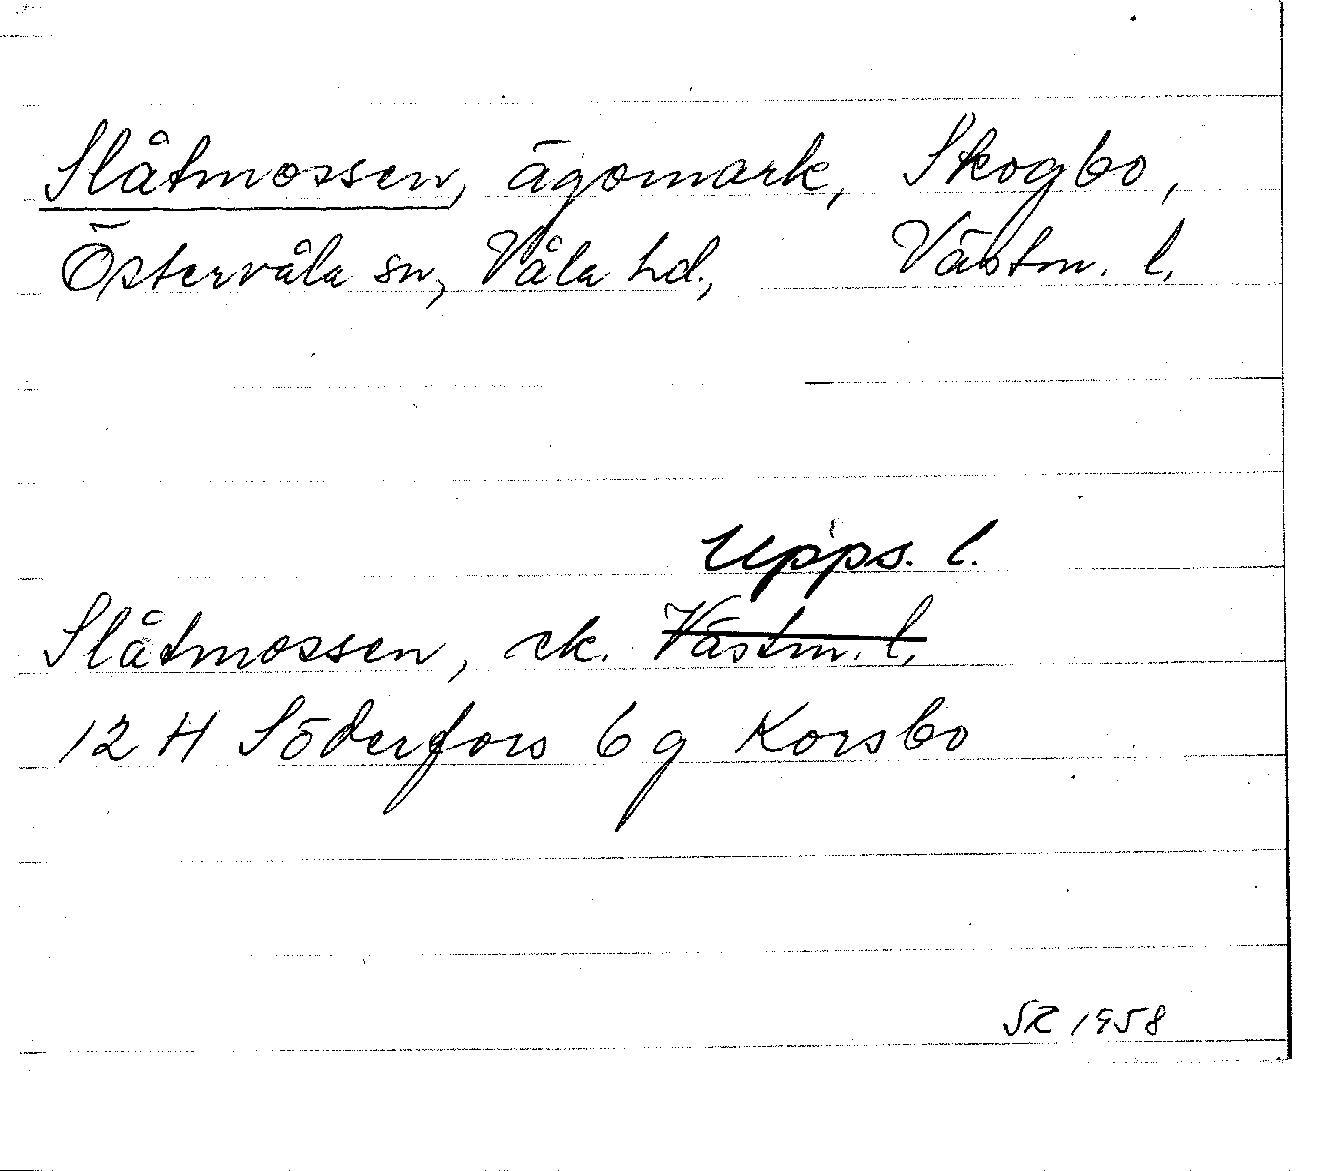 Slåtmossen, ägomark, Skogbo,
Östervåla sn, Våla hd., Västm. l.
Upps. l.
Slåtmossen, ek. Västm. l.
12 H Söderfors 6 g Korsbo
SR 1958